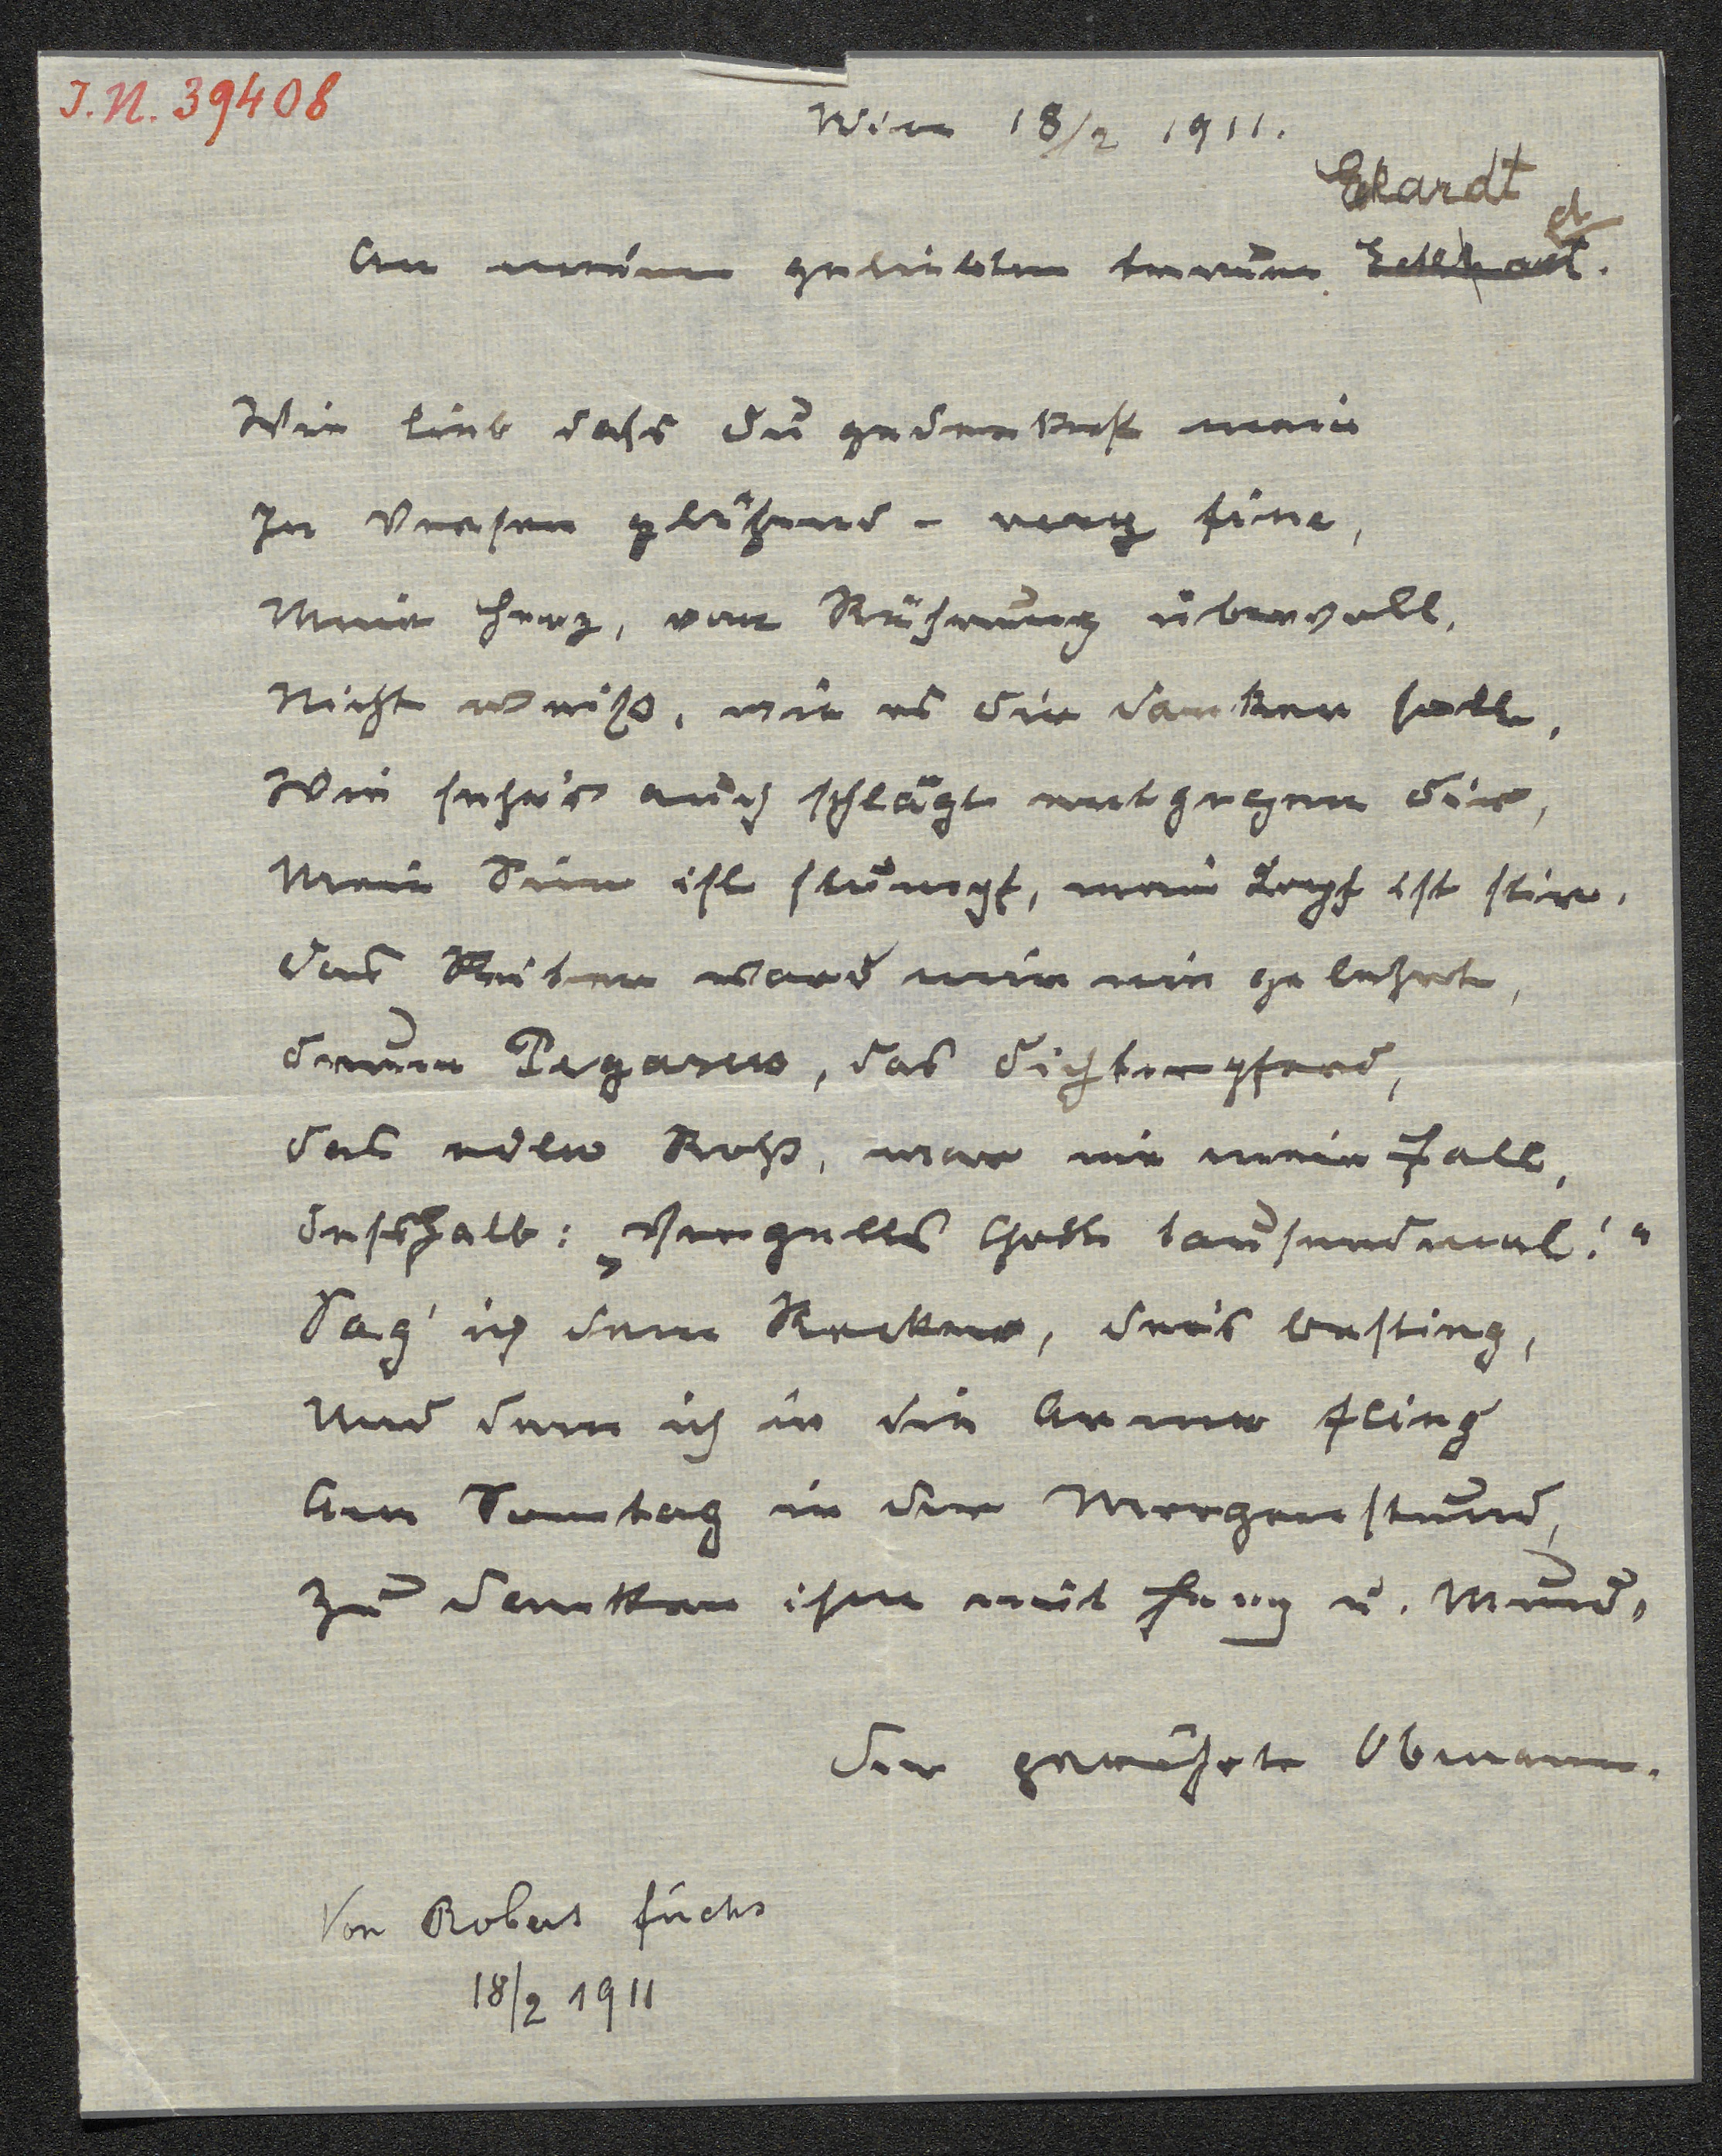 I.N. 39408
Wien 18/2 1911.
Ekardt
d
An meinen geliebten treuen Eckhart.
Wie lieb dass du gedenkest mein
In Versen glühend - reng fein,
Mein Herz, von Rührung übervoll,
Nicht weiß, wie es dir danken soll,
Wie sehr's auch schlägt entgegen dir,
Mein Sinn ist stumpf, mein Kopf ist stier.
Das Reiten ward mir nie gelehrt,
drum Pegasus, das Dichterpferd,
das edle Roß, war nie mein Fall,
desshalb: „Vergelts Gott tausendmal!"
Sag' ich dem Recken, der's besting,
Und dem ich in die Arme fling
Am Sonntag in der Morgenstund,
Zu danken ihm mit Herz u. Mund.
Der gerührte Obmann.
Von Robert Fuchs
18/2 1911